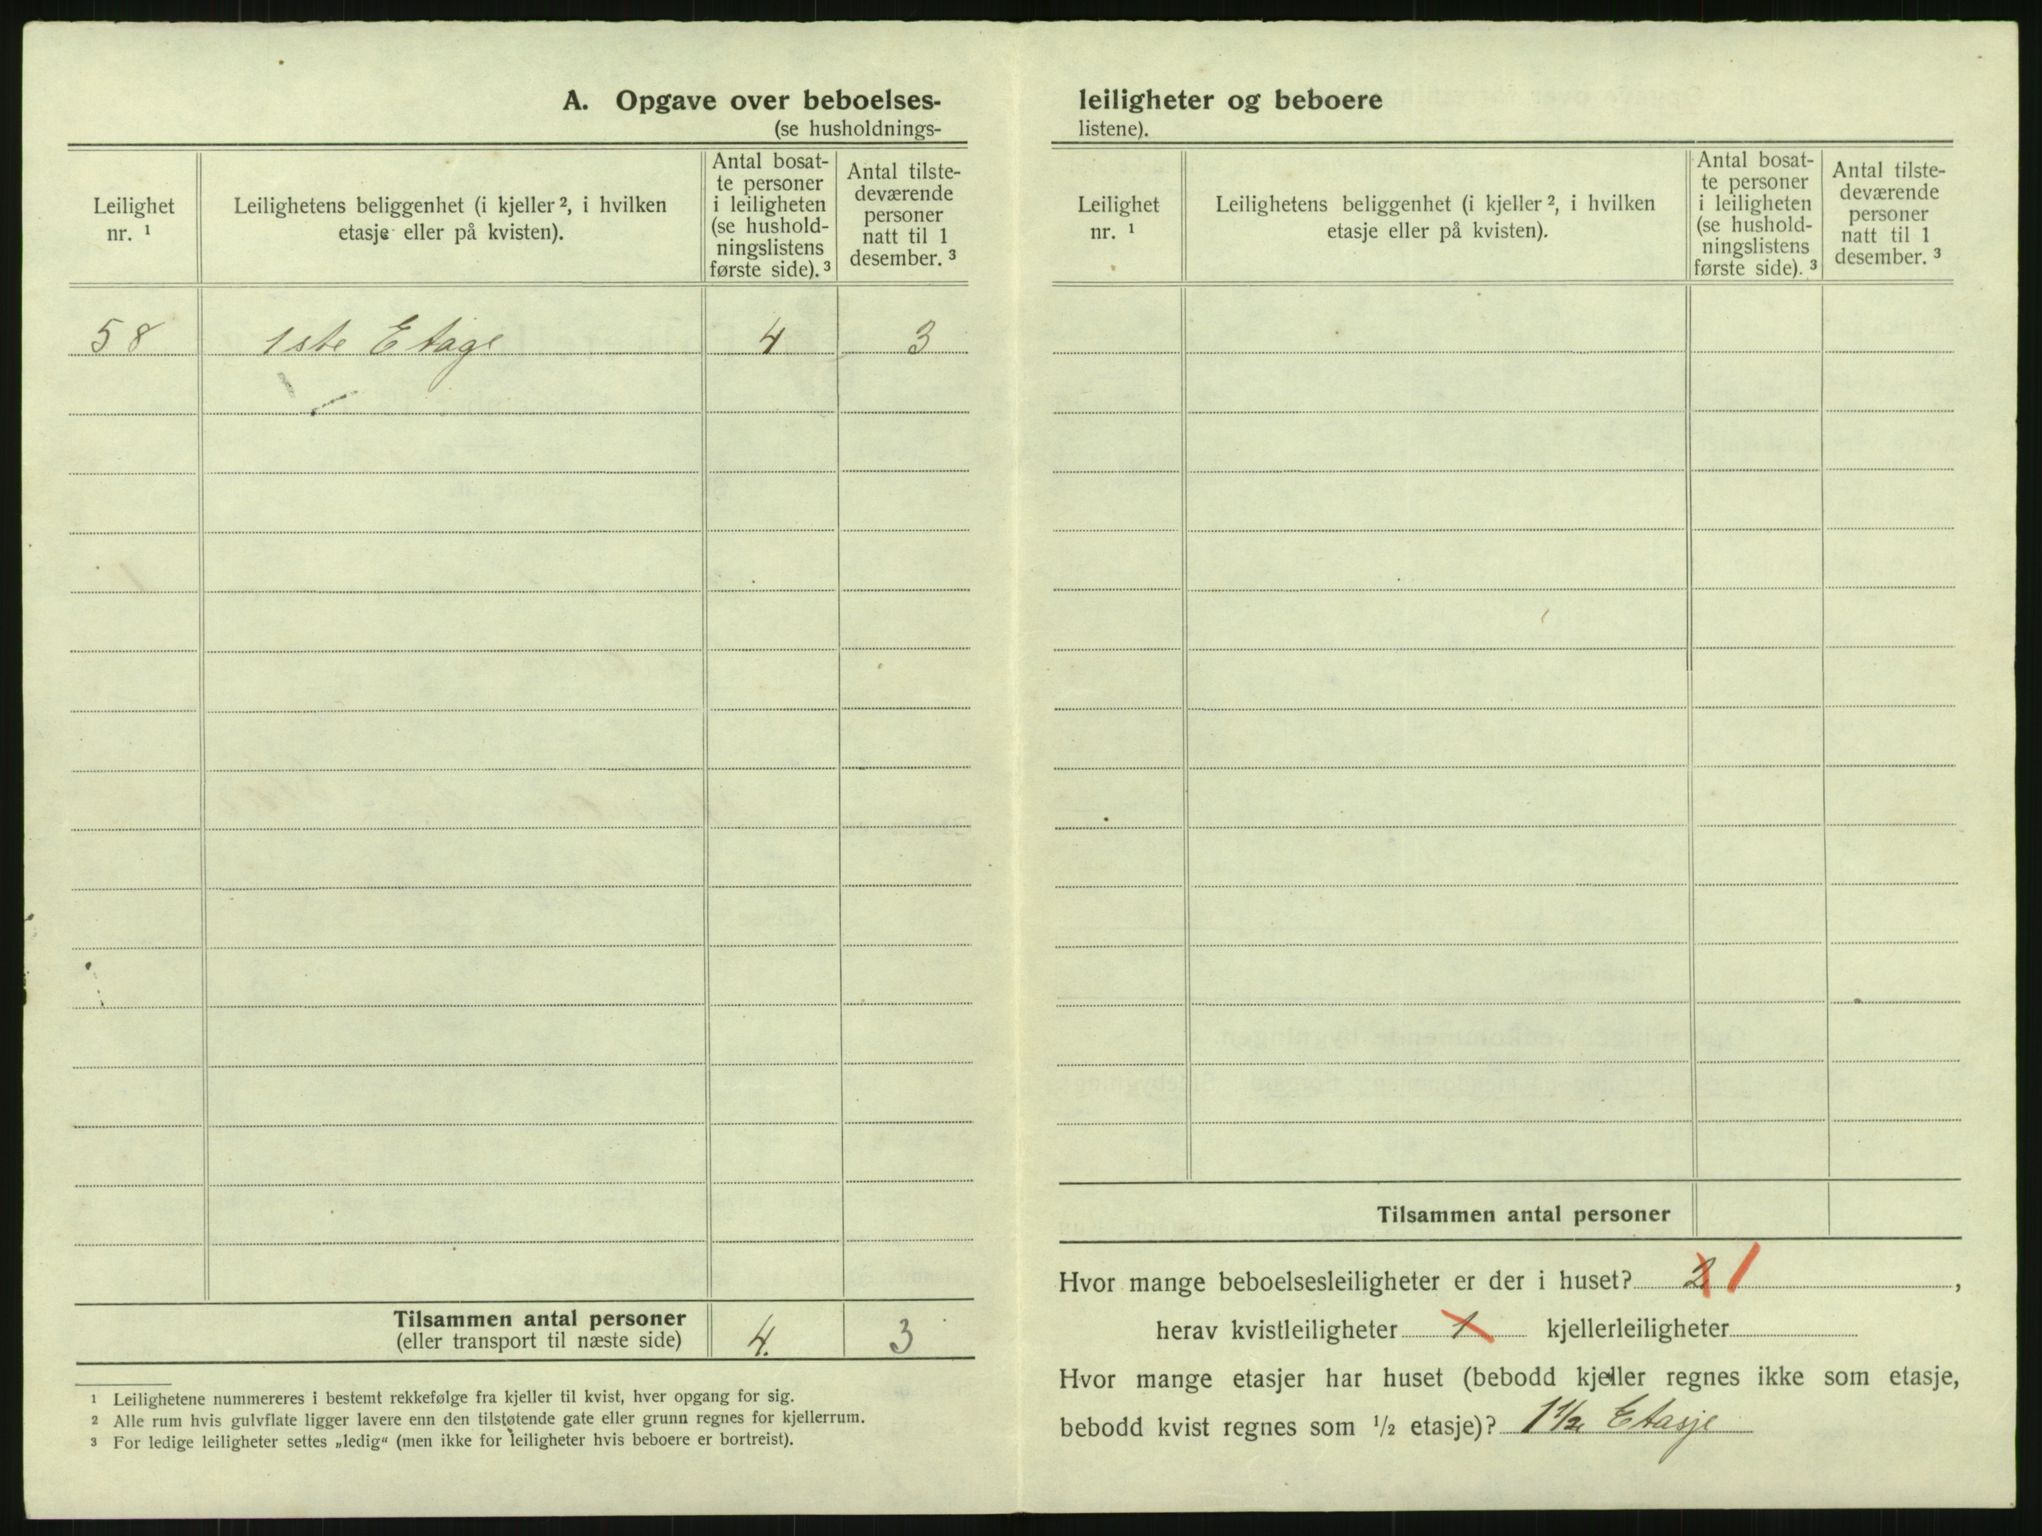 A. Opgave over beboelses-
(se husholdnings-
Leilighet nr. 1
Leilighetens beliggenhet (i kjeller 2, i hvilken
etasje eller på kvisten).
Antal bosat-
te personer
i leiligheten
(se hushold-
ningslistens
første side). 3
Antal tilste-
deværende
personer
natt til 1
desember. 3
58 1ste Etage 4 3
Tilsammen antal personer
(eller transport til næste side)
4. 3
1 Leilighetene nummereres i bestemt rekkefølge fra kjeller til kvist, hver opgang for sig.
2 Alle rum hvis gulvflate ligger lavere enn den tilstøtende gate eller grunn regnes for kjellerrum.
3 For ledige leiligheter settes „ledig“ (men ikke for leiligheter hvis beboere er bortreist).
leiligheter og beboere
listene).
Leilighet nr. 1
Leilighetens beliggenhet (i kjeller 2, i hvilken
etasje eller på kvisten).
Antal bosat-
te personer
i leiligheten
(se hushold-
ningslistens
første side). 3
Antal tilste-
deværende
personer
natt til 1
desember. 3
Tilsammen antal personer
Hvor mange beboelsesleiligheter er der i huset? 2 1,
herav kvistleiligheter 1 kjellerleiligheter
Hvor mange etasjer har huset (bebodd kjeller regnes ikke som etasje,
bebodd kvist regnes som 1/2 etasje)? 1 1/2 Etasje